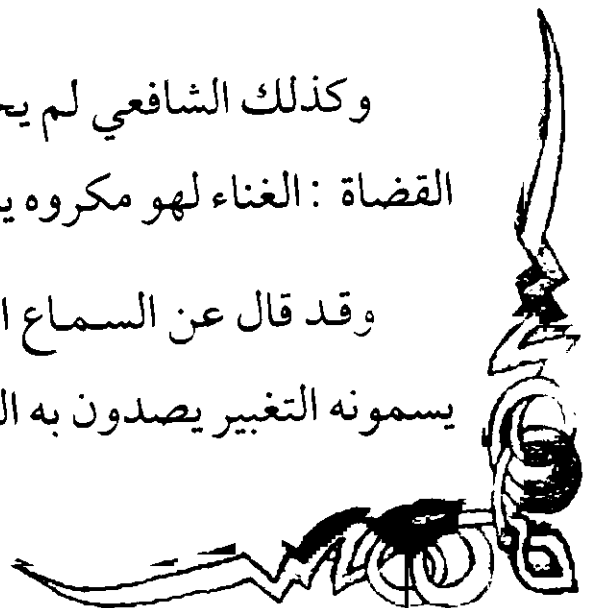 وكذلك الشافعي لم
القضاة : الغناء لهو مكروه
وقد قال عن السماع
يسمونه التغبير يصدون به